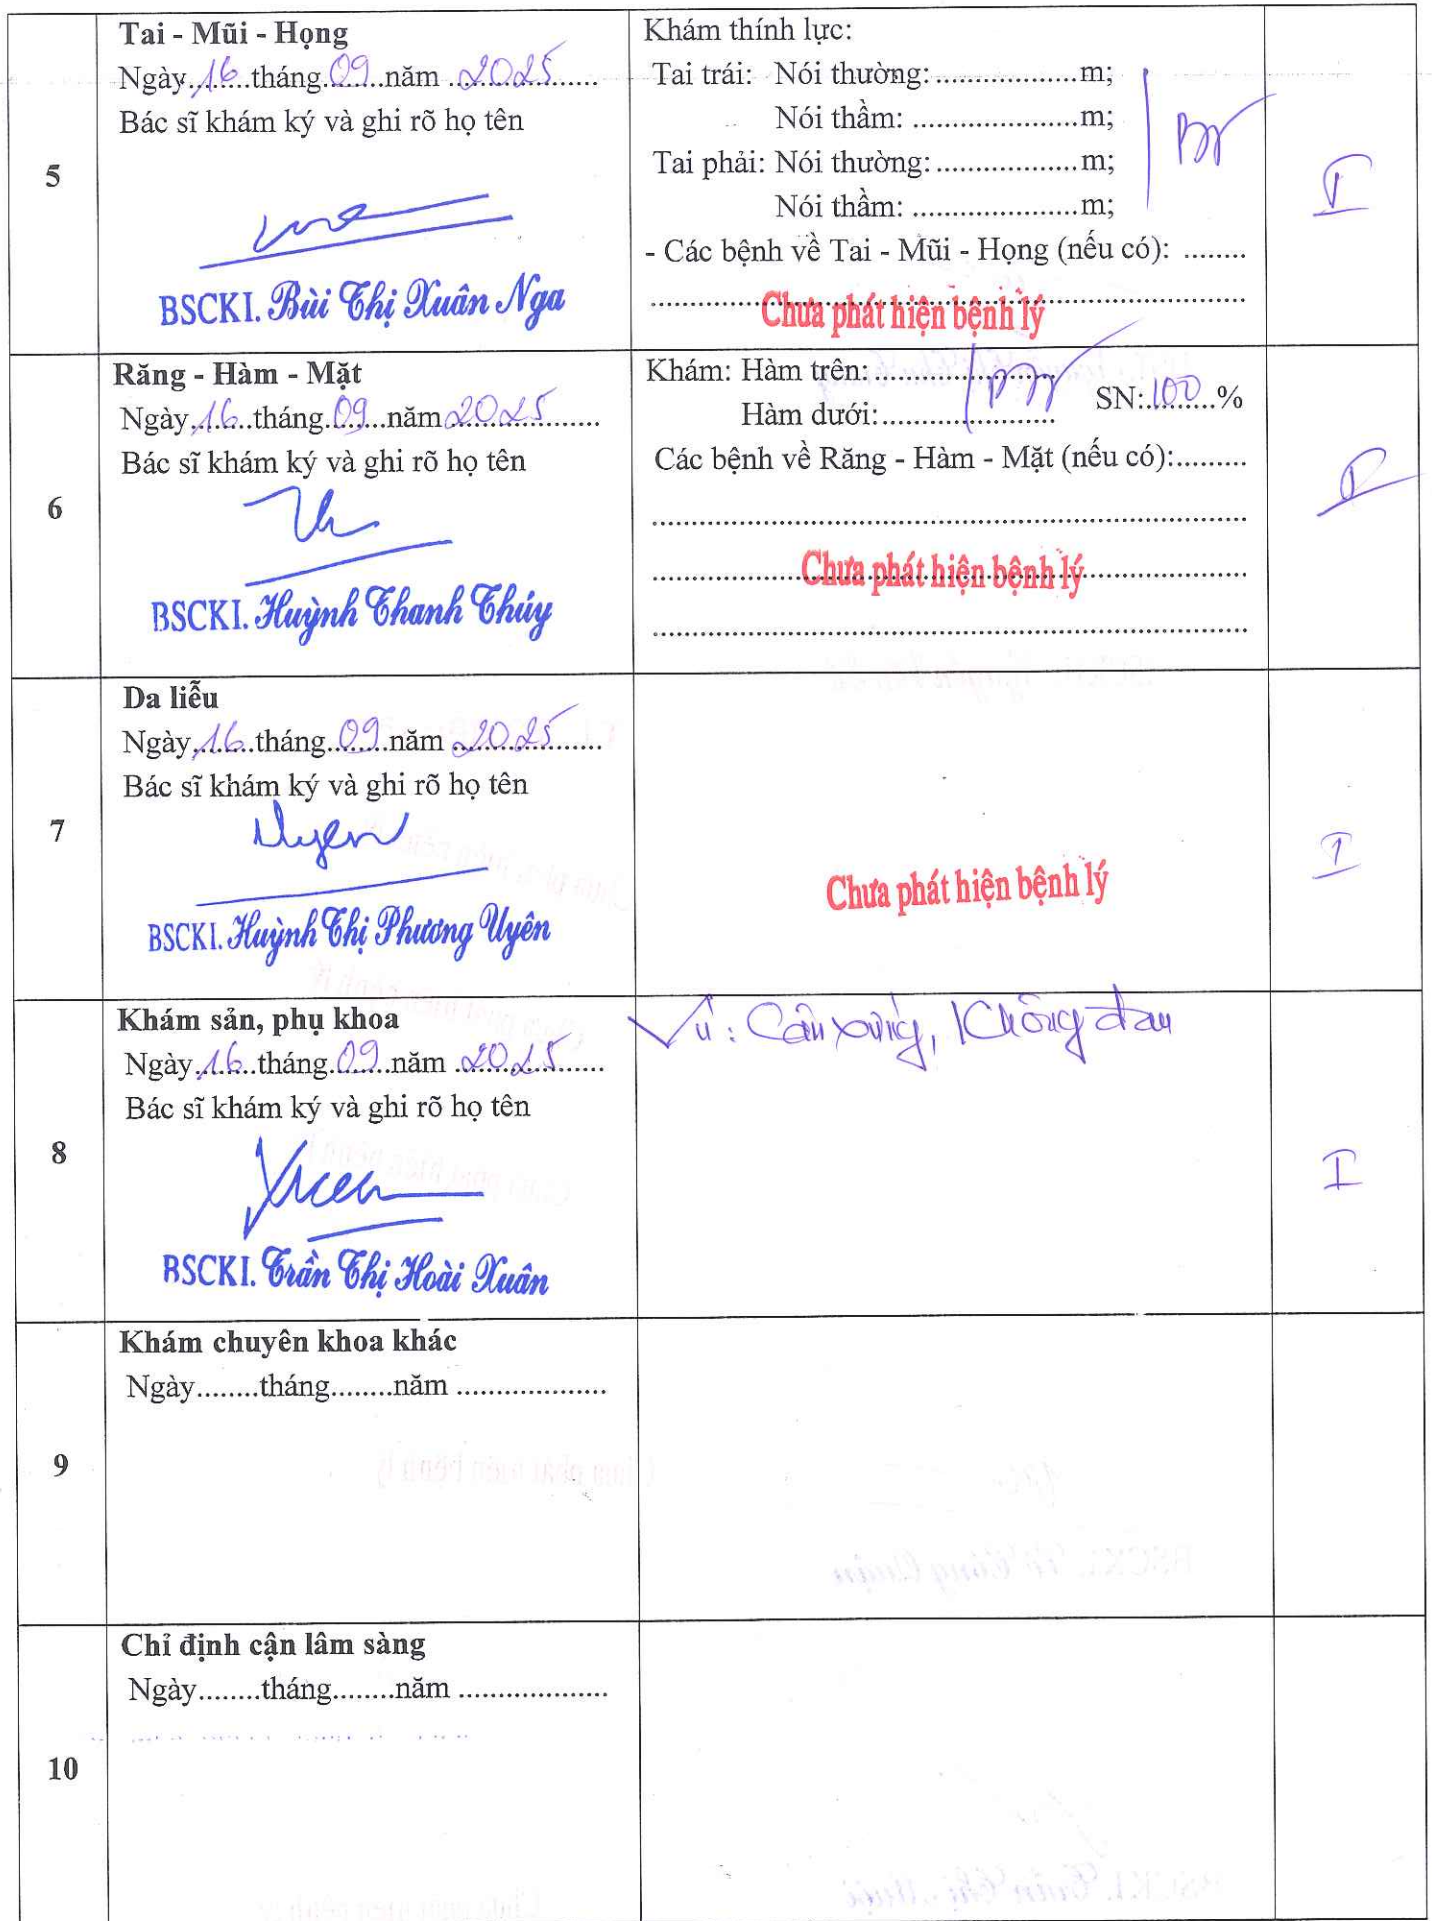 5
Tai - Mũi - Họng
Ngày 16 tháng 09 năm 2025
Bác sĩ khám ký và ghi rõ họ tên
BSCKI. Bùi Thị Xuân Nga
Khám thính lực:
Tai trái: Nói thường:..................m;
Nói thầm: .....................m;
Tai phải: Nói thường:..................m;
Nói thầm: .....................m;
- Các bệnh về Tai - Mũi - Họng (nếu có): ........
Chưa phát hiện bệnh lý
I
6
Răng - Hàm - Mặt
Ngày 16 tháng 09 năm 2025
Bác sĩ khám ký và ghi rõ họ tên
BSCKI. Huỳnh Thanh Thúy
Khám: Hàm trên:.......................
SN: 100 %
Hàm dưới:.......................
Các bệnh về Răng - Hàm - Mặt (nếu có):.........
Chưa phát hiện bệnh lý
I
7
Da liễu
Ngày 16 tháng 09 năm 2025
Bác sĩ khám ký và ghi rõ họ tên
Uyên
BSCKI. Huỳnh Thị Phương Uyên
Chưa phát hiện bệnh lý
I
8
Khám sản, phụ khoa
Ngày 16 tháng 09 năm 2025
Bác sĩ khám ký và ghi rõ họ tên
BSCKI. Trần Thị Hoài Xuân
Vú: Cân xứng, Không đau
I
9
Khám chuyên khoa khác
Ngày........tháng........năm ...................
10
Chỉ định cận lâm sàng
Ngày........tháng........năm ...................